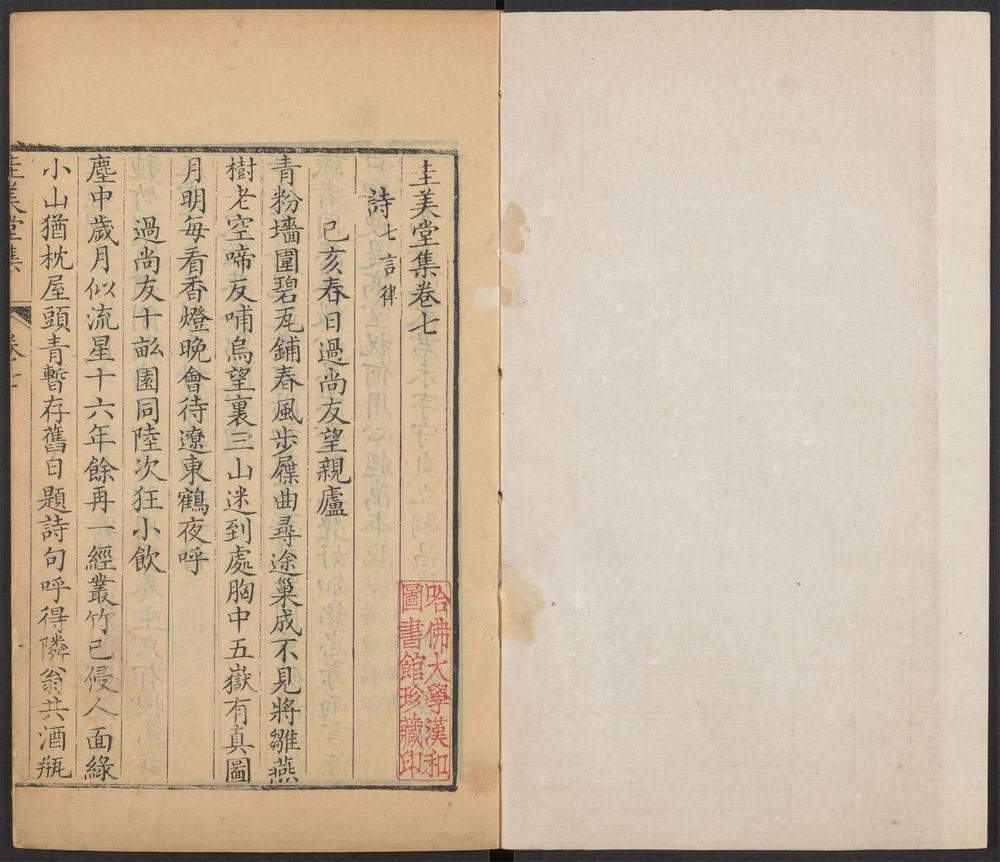 圭美堂集卷七
詩七言律
己亥春日過尚友望親廬
青粉墻圍碧瓦鋪春風步屧曲尋途巢成不見將雛燕
樹老空啼反哺烏望裏三山迷到處胸中五嶽有真圖
月明每看香燈晚會待遼東鶴夜呼
過尚友十畝園同陸次狂小飲
塵中歲月似流星十六年餘再一經叢竹已侵人面綠
小山猶枕屋頭青暫存舊日題詩句呼得隣翁共酒瓶
圭美堂集 卷七
哈佛大學漢和
圖書館珍藏印